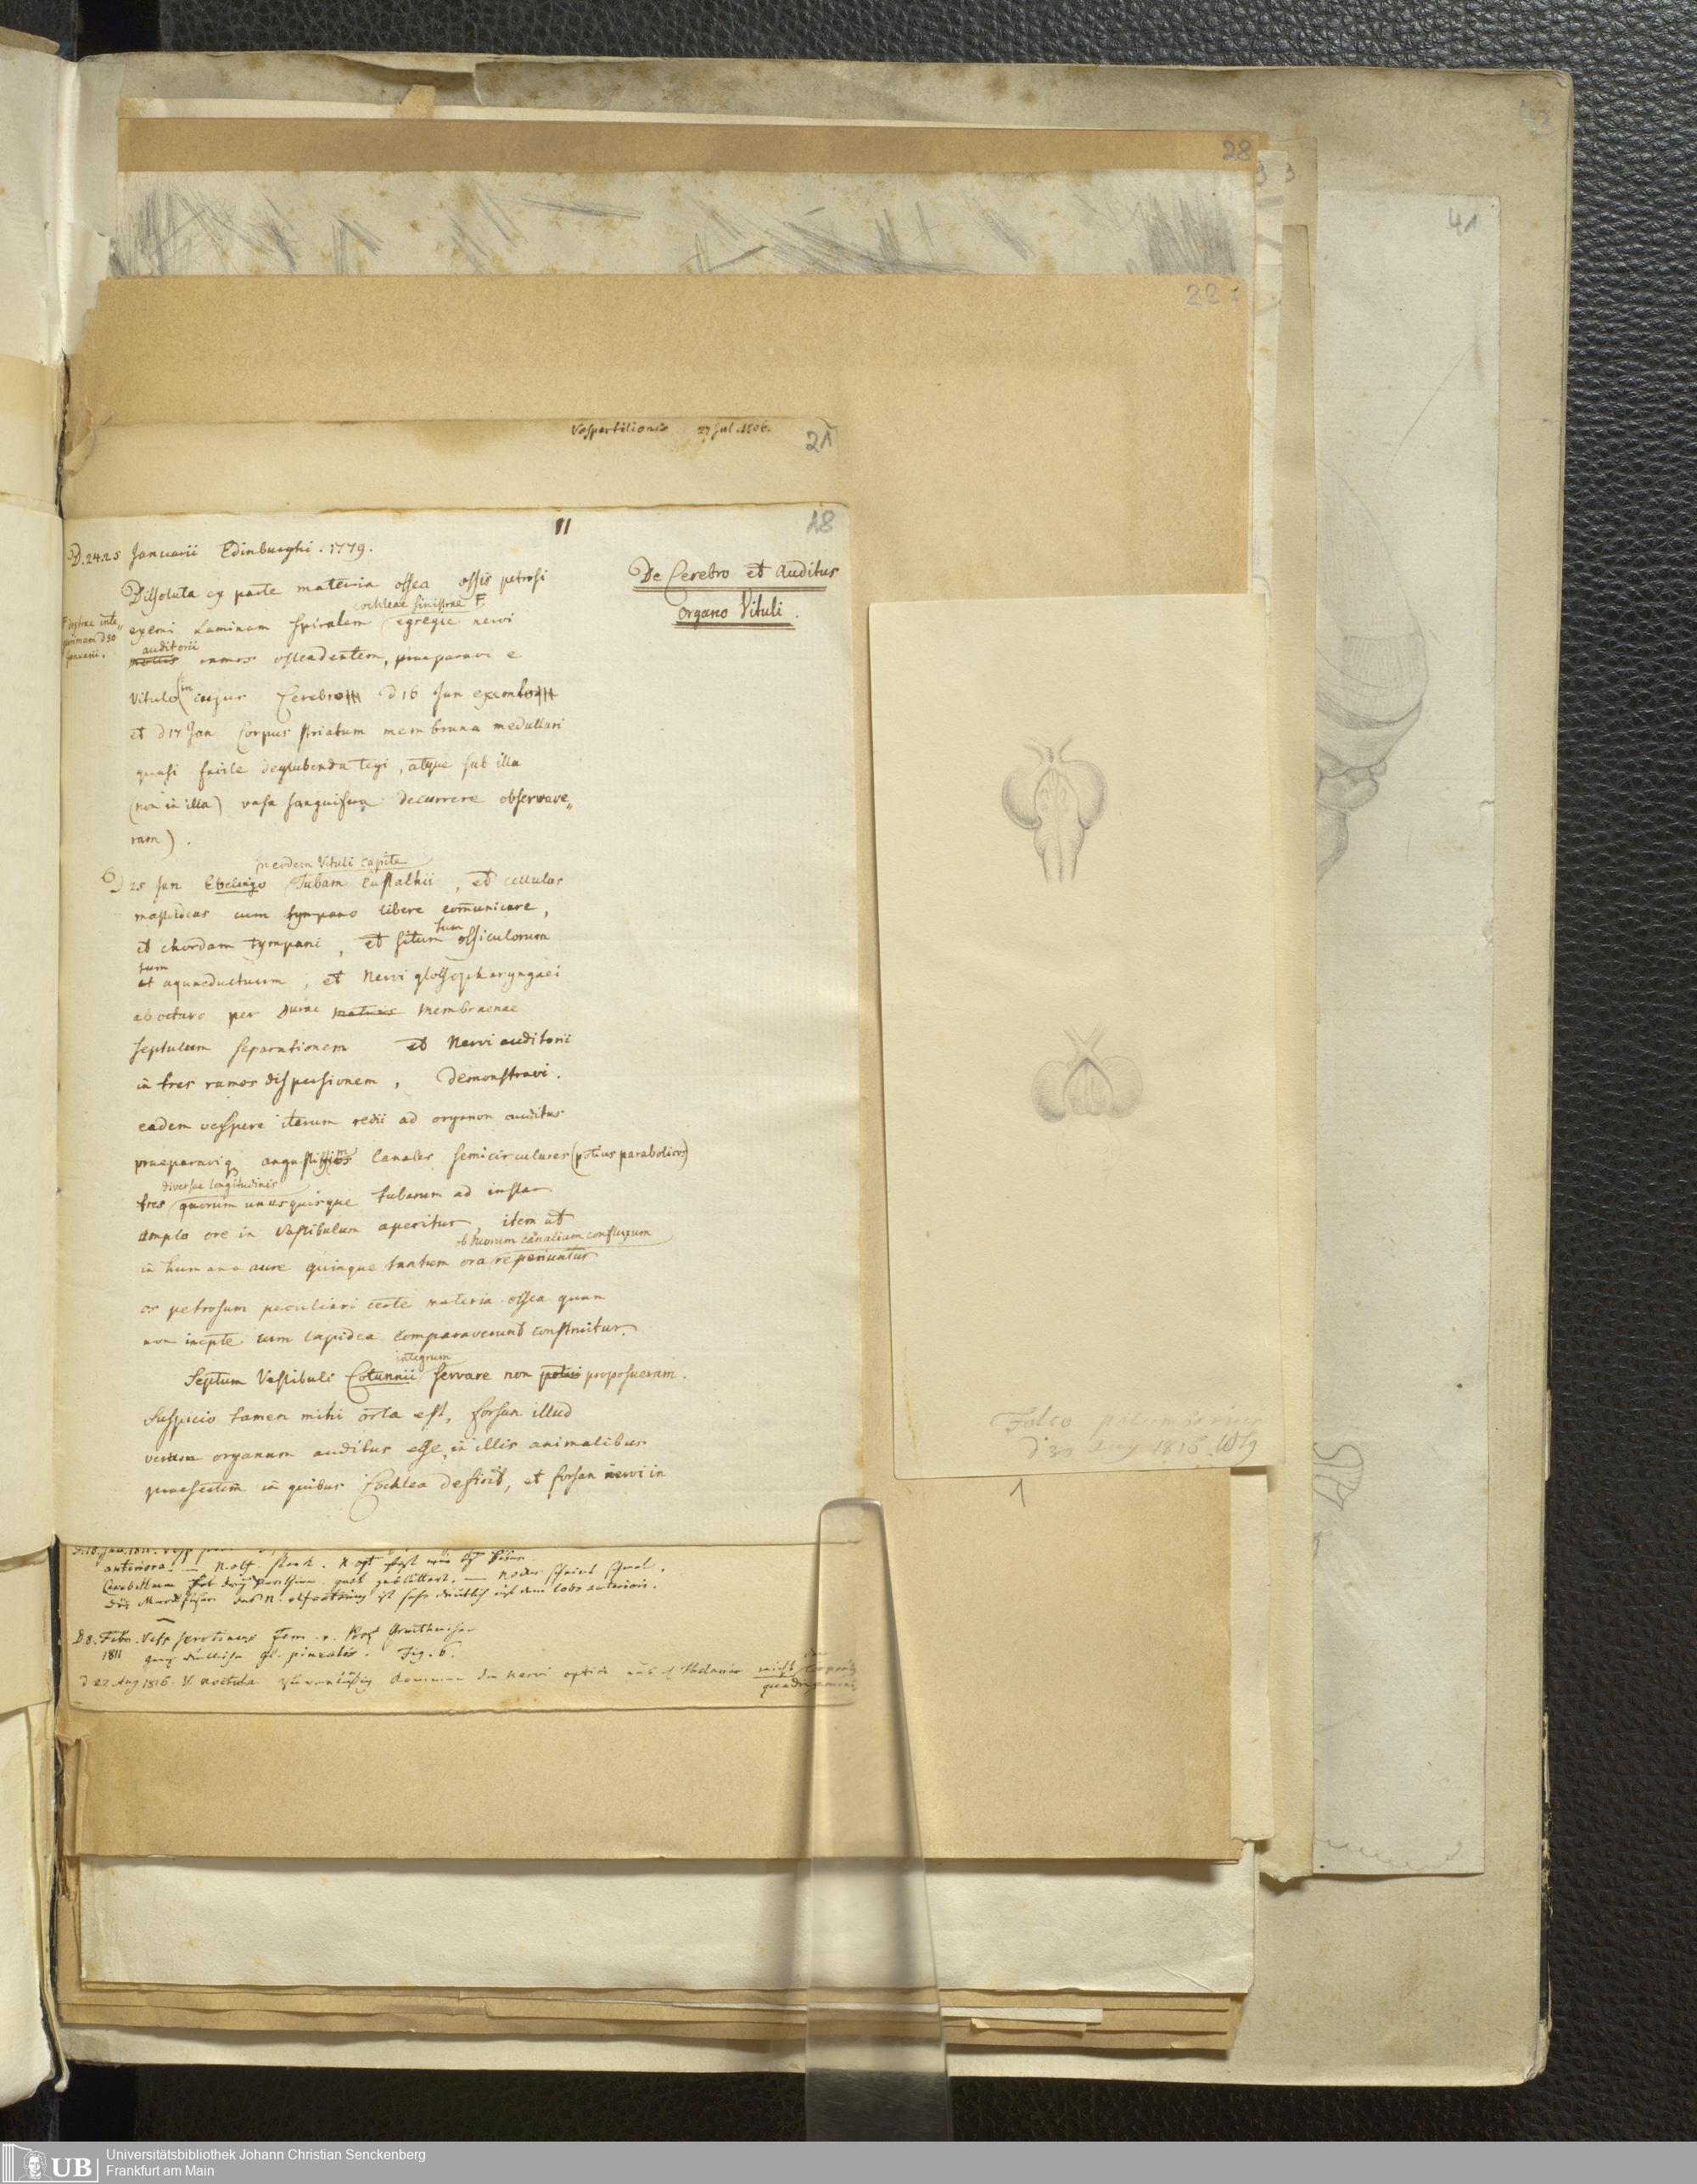 43
28
41
22
Vespertilionis 27 Jul. 1806.
21
II
18
D. 24.25 Januarii Edinburghi. 1779.
De Cerebro et Auditus
organo Vituli.
Dissoluta ex parte materia ossea ossis petrosi
cochleae sinistrae F.
exemi Laminam spiralem egregie nervi
auditorii
ramos ostendentem, praeparavi e
F dextrae inte„
Januarii.
Vitulo (in cujus Cerebro d 16 Jan exemto
et d 17 Jan Corpus striatum membrana medullari
quasi facile deglubenda tegi, atque sub illa
(non in illa) vasa sanguifera decurrere observave„
ram).
in eodem Vituli capite
D 25 Jan Ebelingo Tubam Eustalhii, et cellulas
mastideas cum tympano libere com̄unicare,
et chordam tympani, et situm tum ossiculorum
tum
et aquaeductuum, et Nervi glossopharyngaei
ab octavo per durae membraenae
septulum separationem et Nervi auditorii
in tres ramos dispersionem, demonstravi.
eadem vespere iterum redii ad organon auditus
praeparaviq angustissimos Canales semicirculares (potius parabolicos)
diversae longitudinis
tres quorum unusquisque tubarum ad instar
amplo ore in Vestibulum aperitur, item ut
ob duorum canalium confluxum
in humana aure quinque tantum ora reperiuntur
os petrosum peculiari certe materia ossea quam
non inepte cum lapidea comparaverunt construitur.
integrum
Septum Vestibuli Cotunnii servare non potui proposueram.
Suspicio tamen mihi orta est, forsan illud
verum organum auditus esse, in illis animalibus
praesertim in quibus Cochlea deficit, et forsan nervi in
Falco palumbarius
d 30 Aug 1816. Wbg
1
anteriora. — N. olf. stark. N opt
Cerebellum
N. olfactorius ist sehr deutlich lobo anterioris.
D 8. Febr. Vesp serotinus fem. v. Prof Gruithuisen
1811 gl. pinealis. Fig. 6.
d 22 Aug 1816. V. noctula kommen die Nervi optici nicht